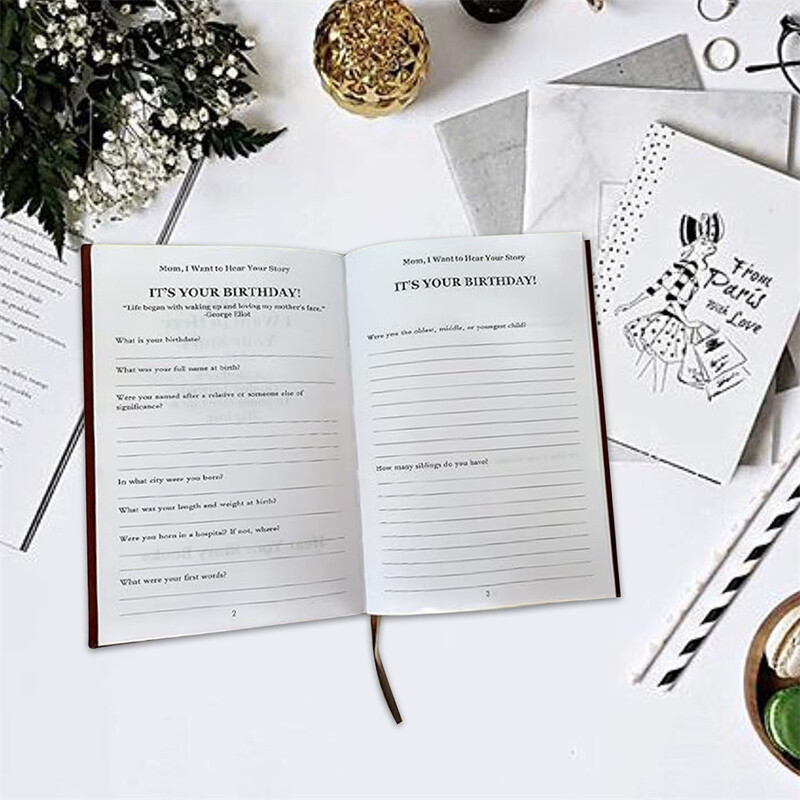 Mom, I Want to Hear Your Story
IT'S YOUR BIRTHDAY!
"Life began with waking up and loving my mother's face."
-George Eliot
What is your birthdate?
What was your full name at birth?
Were you named after a relative or someone else of
significance?
In what city were you born?
What was your length and weight at birth?
Were you born in a hospital? If not, where?
What were your first words?
2
Mom, I Want to Hear Your Story
IT'S YOUR BIRTHDAY!
Were you the oldest, middle, or youngest child?
How many siblings do you have?
3
From
Paris
with Love